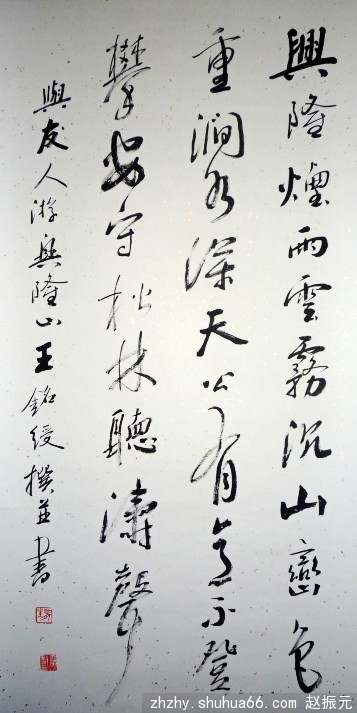 興隆煙雨雲霧沉山巒色
重澗水深天公有意不登
攀安守松林聽濤聲
與友人游興隆山王銘綬撰並書
zhzhy.shuhua66.com 赵振元